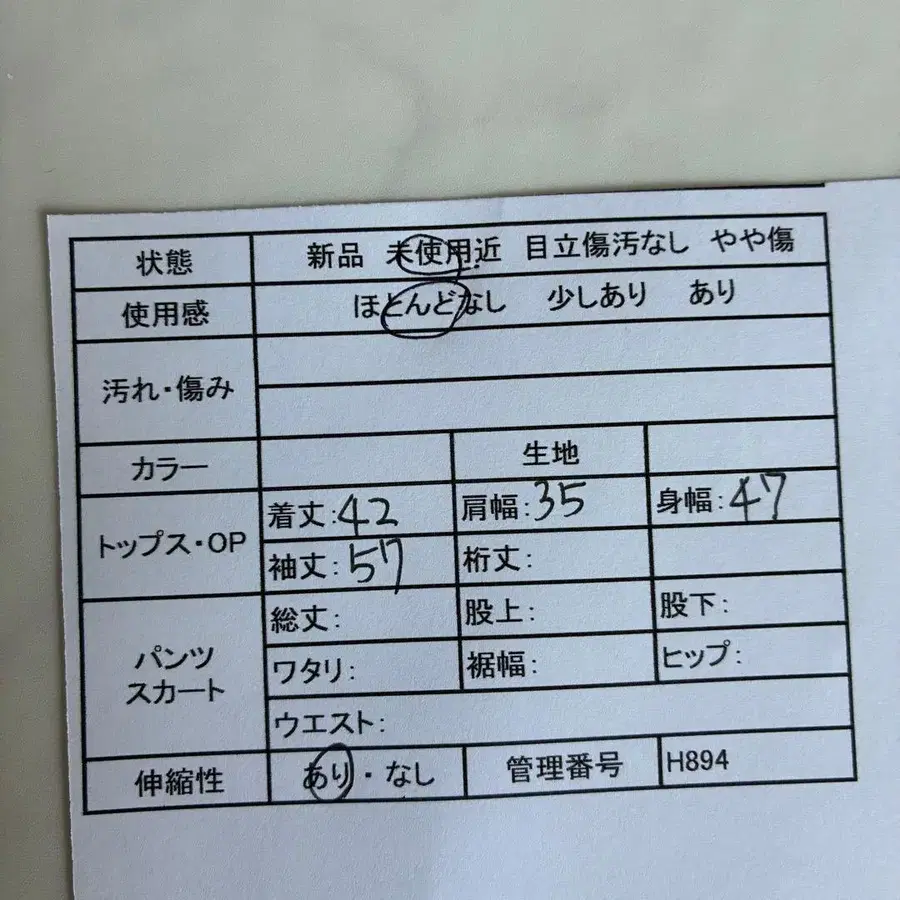 状態 新品 未使用近 目立傷汚なし やや傷
使用感 ほとんどなし 少しあり あり
汚れ・傷み
カラー 生地
トップス・OP 着丈:42 肩幅:35 身幅:47
袖丈:57 裄丈:
パンツ スカート 総丈: 股上: 股下:
ワタリ: 裾幅: ヒップ:
ウエスト:
伸縮性 あり・なし 管理番号 H894